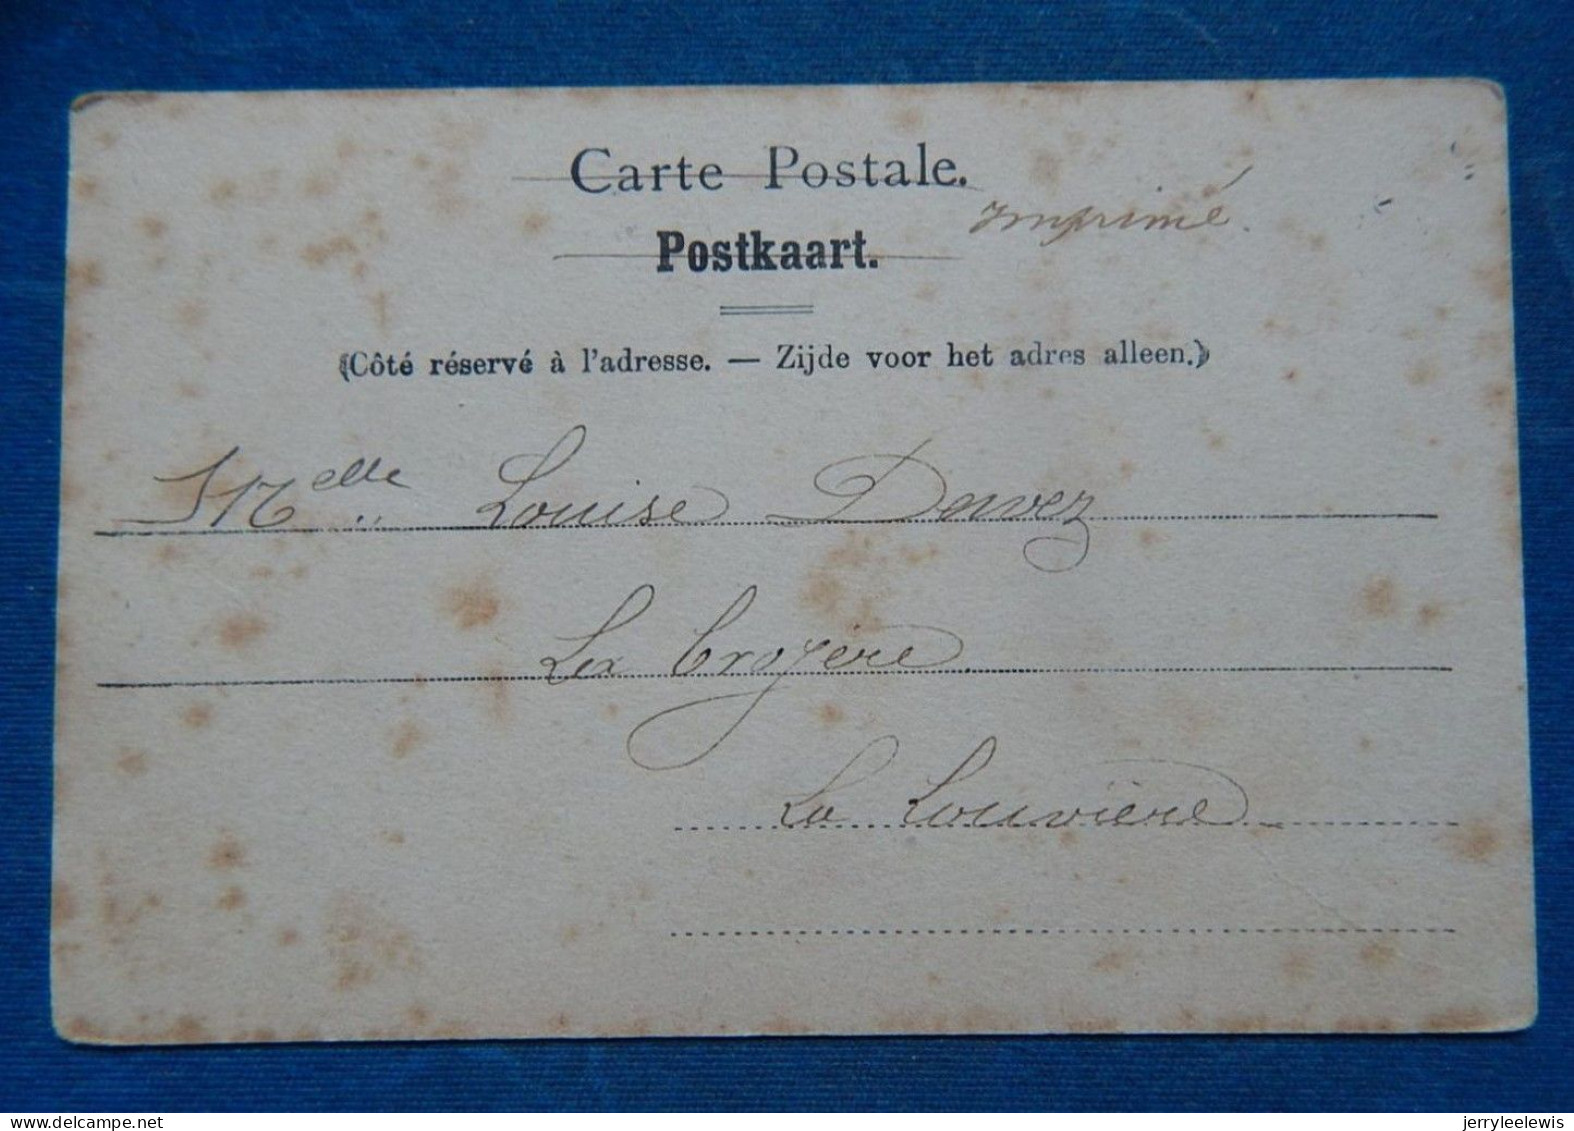 Carte Postale.
Imprimé.
Postkaart.
(Côté réservé à l'adresse. — Zijde voor het adres alleen.)
Melle Louise Dervez
La Croyère
La Louvière
jerryleelewis